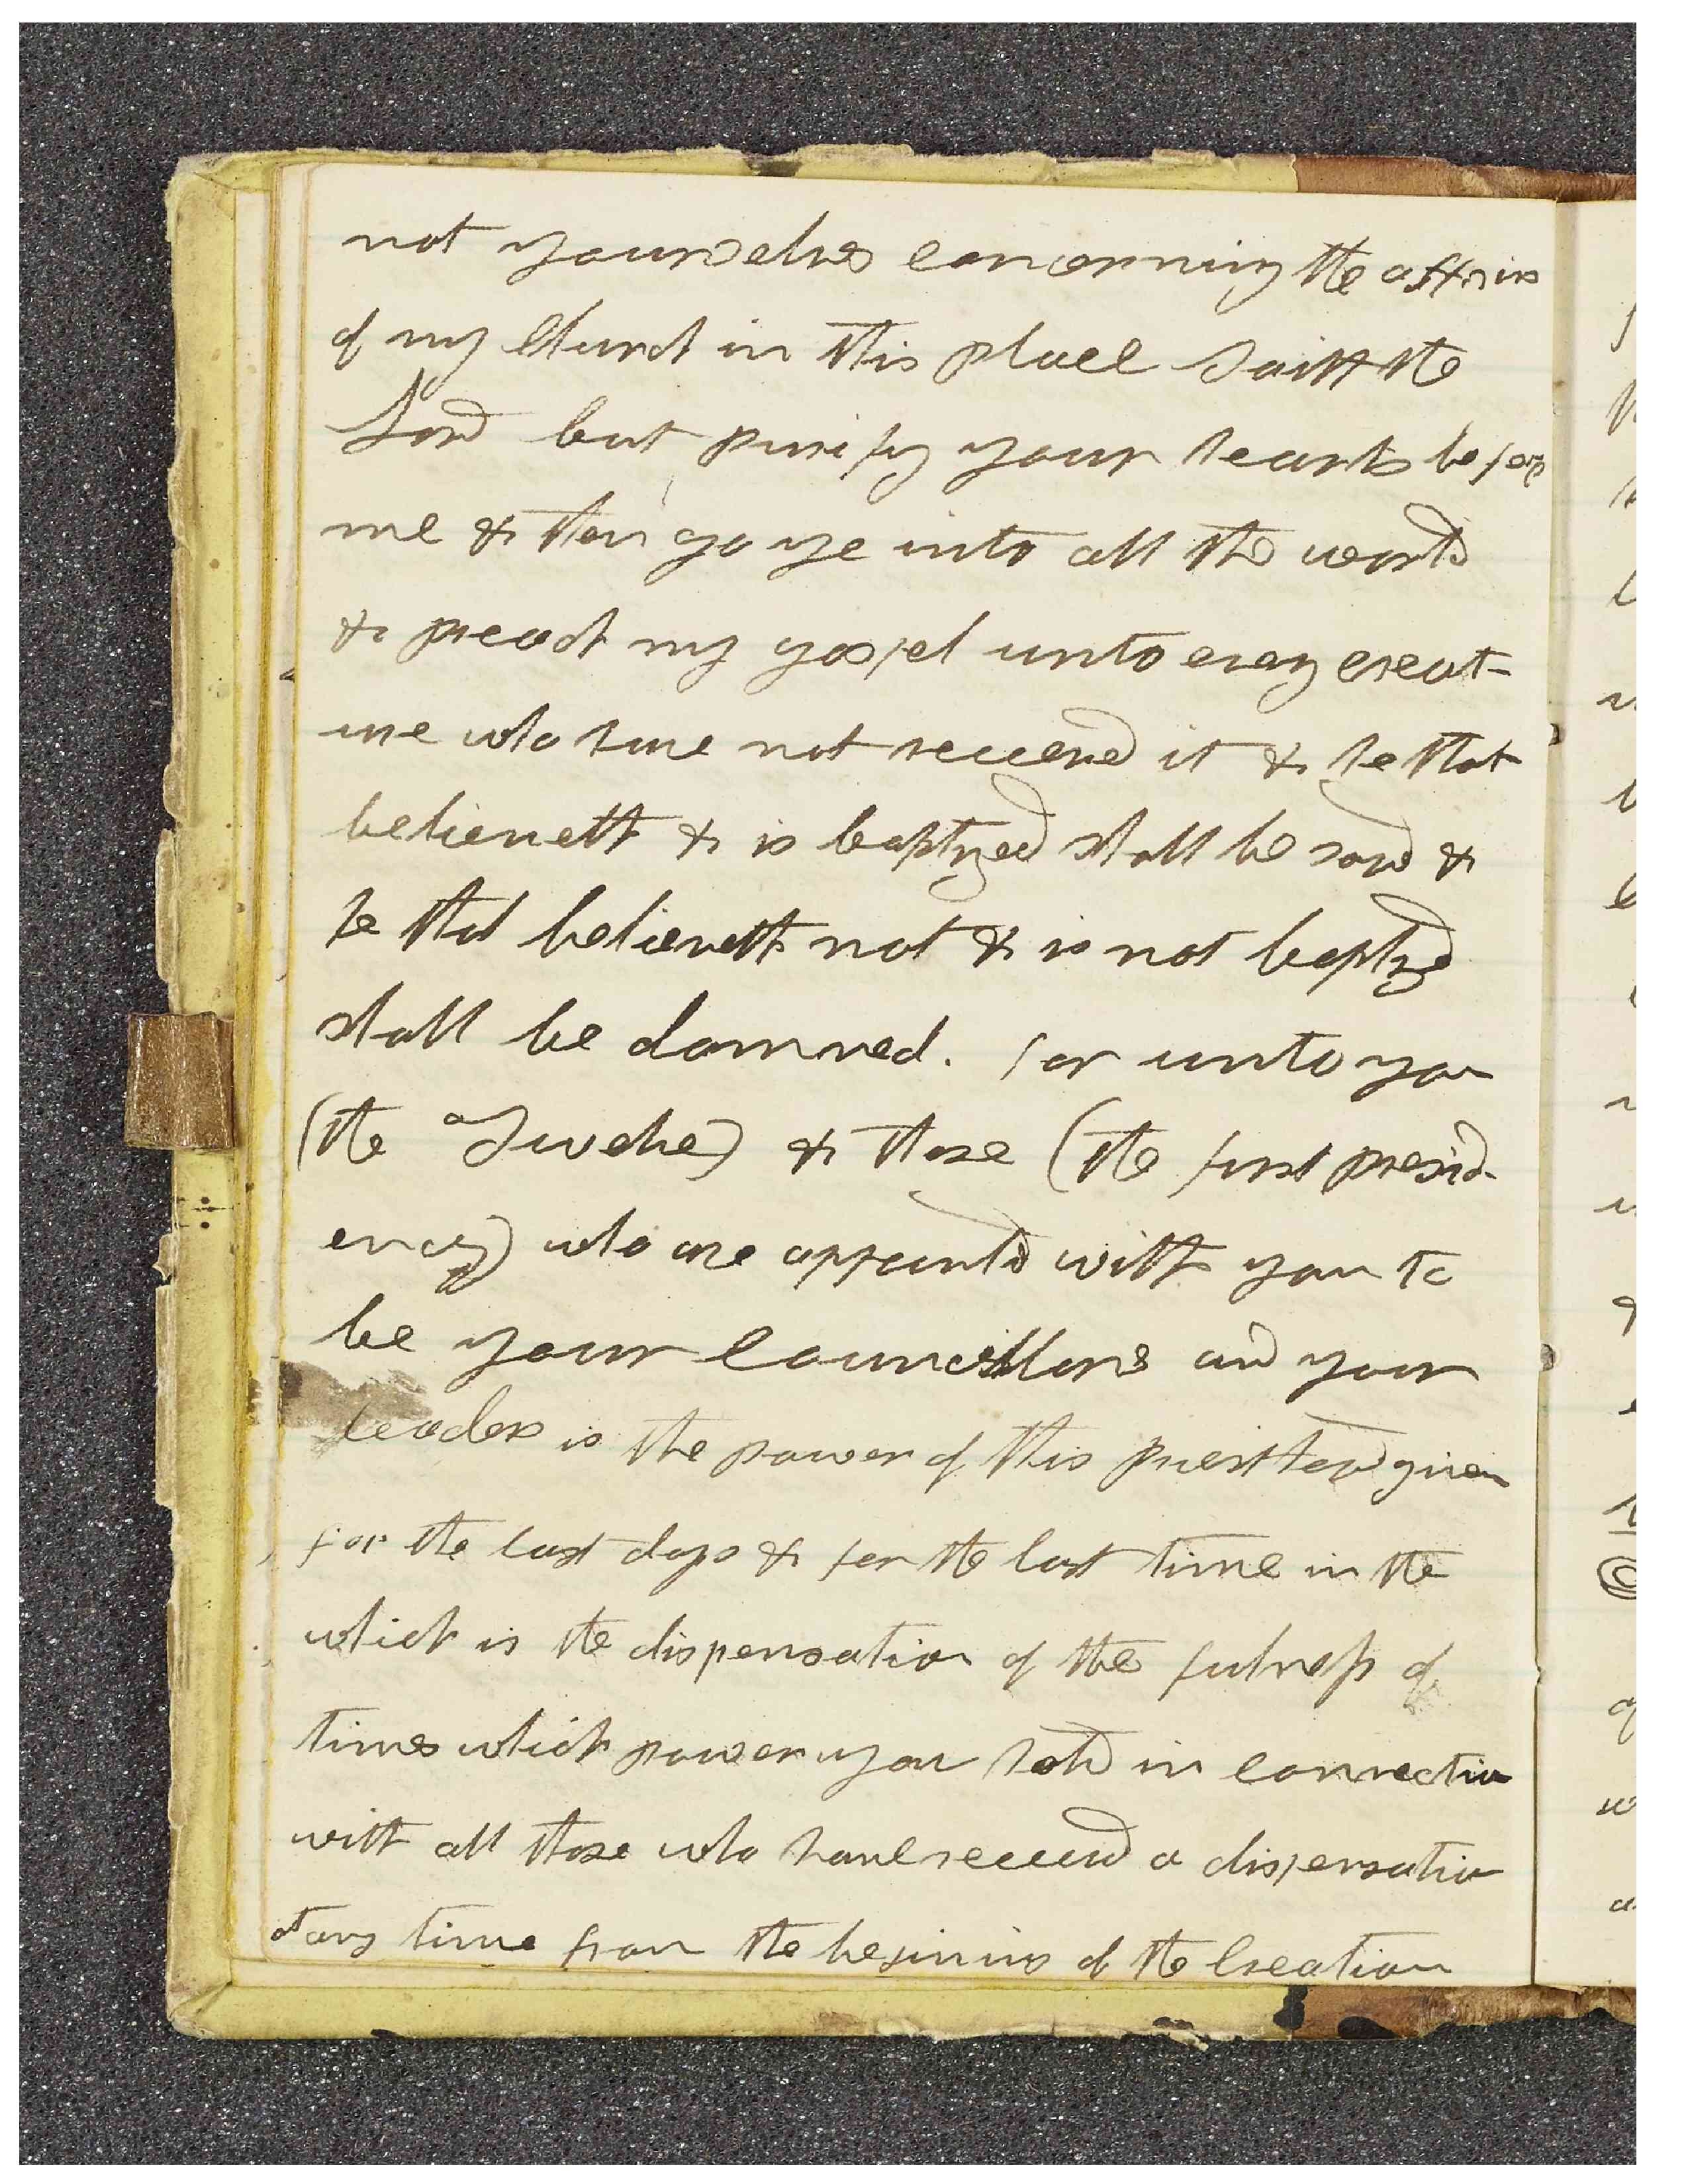 not yourselves concerning the affairs
of my Church in this place saith the
Lord but purify your hearts before
me & then go ye into all the world
& preach my gospel unto evry creat-
ure who have not received it & he that
believeth & is baptized shall be savd &
he that believeth not & is not baptzd
shall be damned. for unto you
(the Twelve) & those (the first presid-
ency) who are appointd with you to
be your Councillors and your
leaders is the power of this priesthood given
for the last days & for the last time in the
which is the dispensation of the fulness of
times which power you hold in connection
with all those who have received a dispensation
at any time from the begining of the Creation